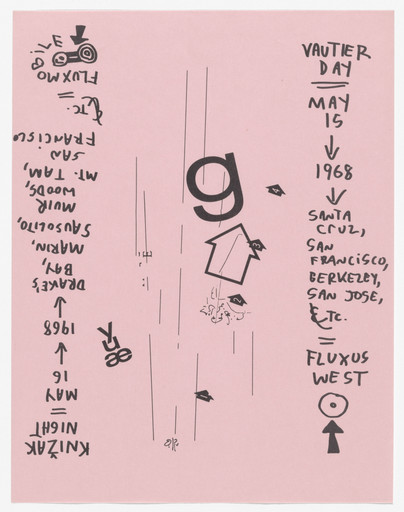 VAUTIER
DAY
=
MAY
15
1968
SANTA
CRUZ,
SAN
FRANCISCO,
BERKELEY,
SAN JOSE,
ETC.
=
FLUXUS
WEST
g
y
u
æ
KNIŽAK
NIGHT
=
MAY
16
1968
DRAKE'S
BAY,
MARIN,
SAUSOLITO,
MUIR
WOODS,
MT. TAM,
SAN
FRANCISCO
ETC.
=
FLUXMOBILE